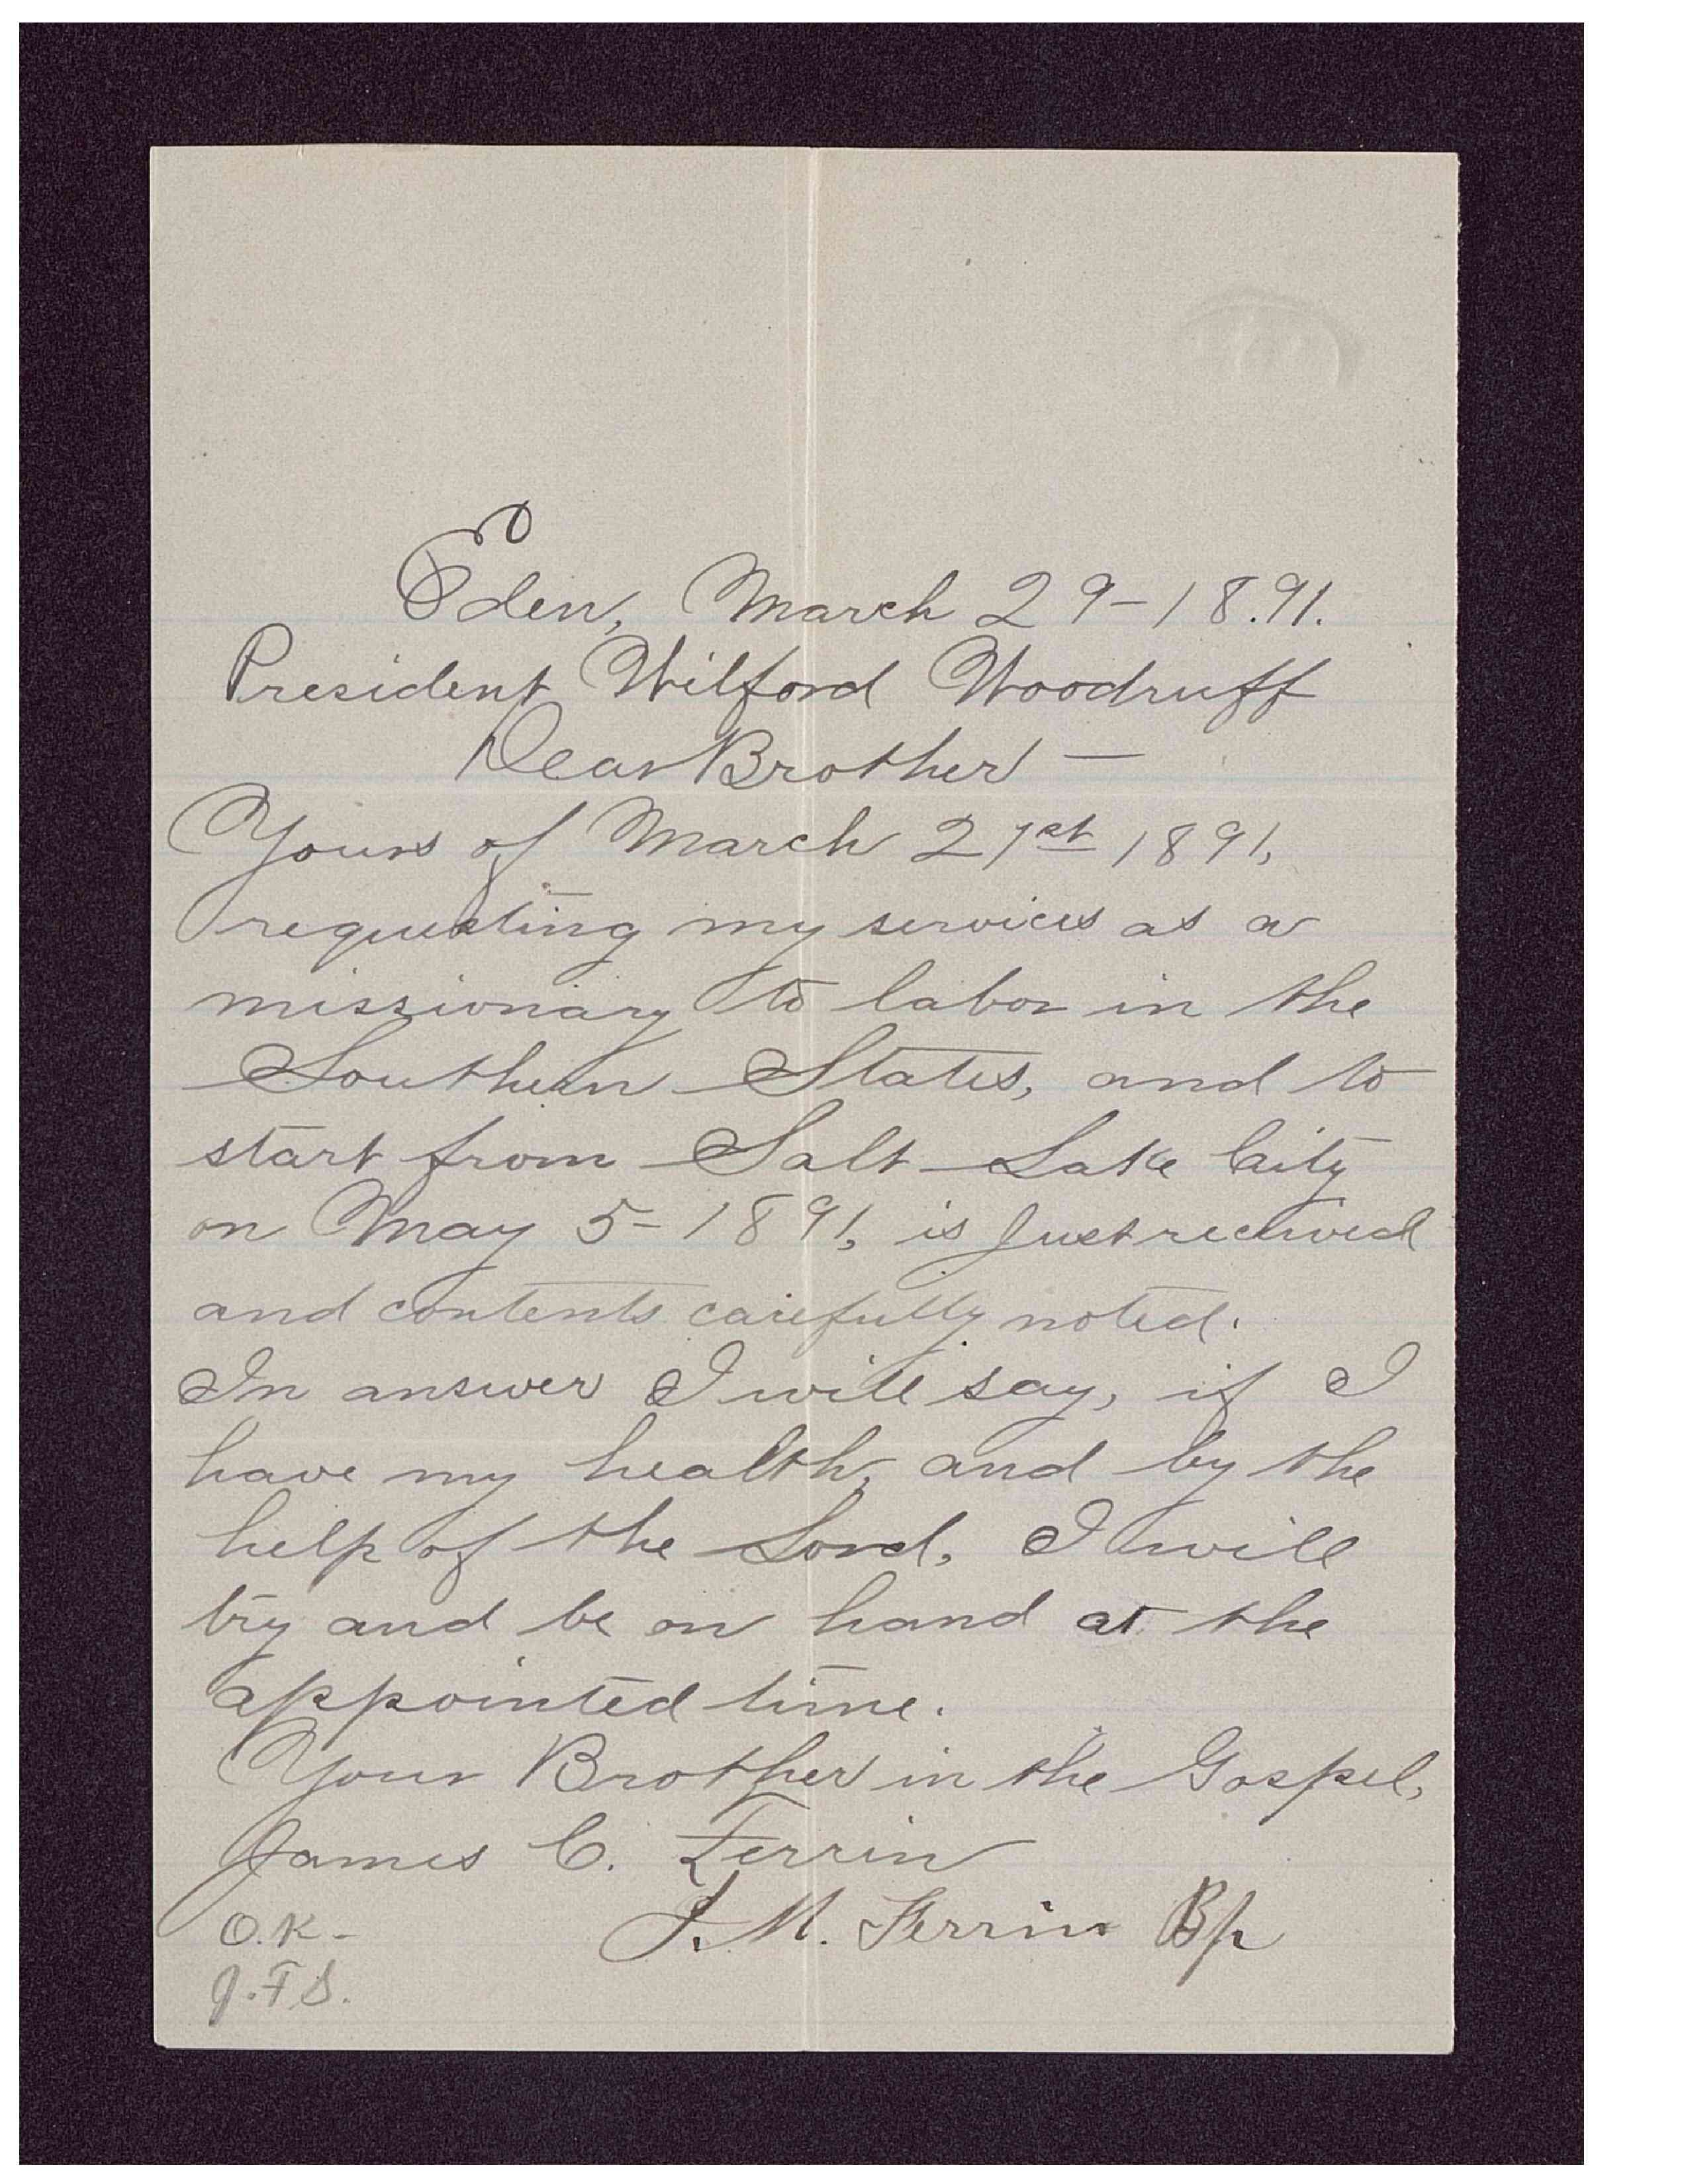 Eden, March 29-18.91.
President Wilford Woodruff
Dear Brother —
Yours of March 21st 1891,
requesting my services as a
missionary to labor in the
Southern States, and to
start from Salt Lake City
on May 5-1891, is just received
and contents carefully noted.
In answer I will say, if I
have my health, and by the
help of the Lord, I will
try and be on hand at the
appointed time.
Your Brother in the Gospel,
James C. Ferrin
J. M. Ferrin Bp
O.K-
J.F.S.